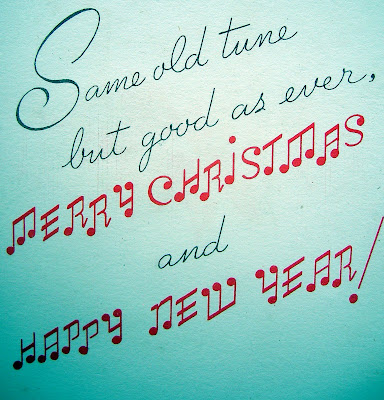 Same old tune
but good as ever,
MERRY CHRISTMAS
and
HAPPY NEW YEAR!